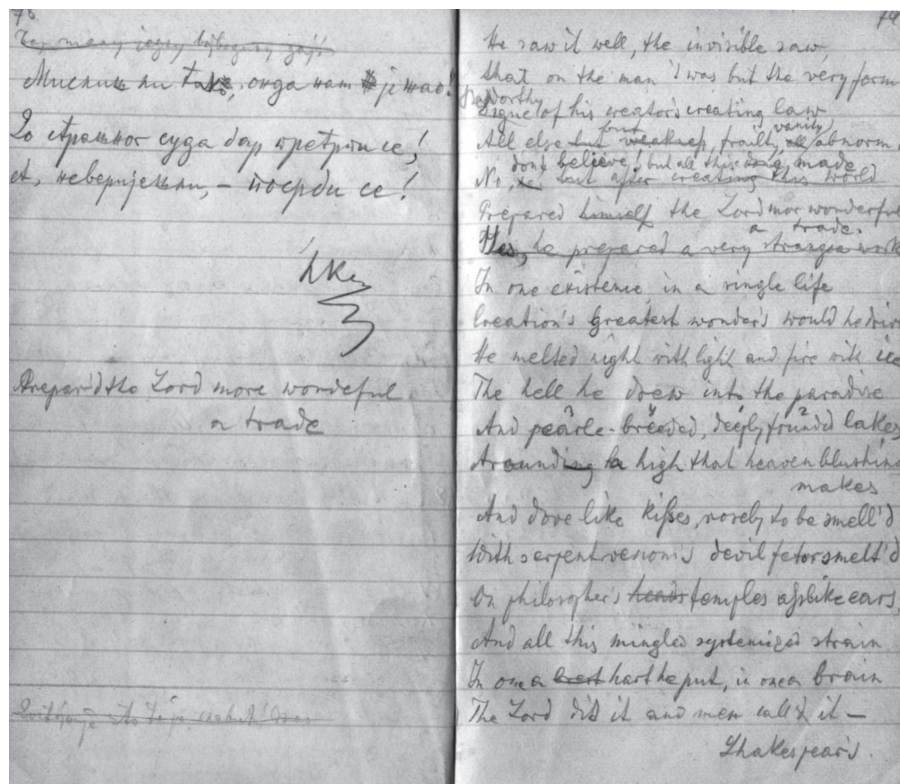 Мислиш ли тако, онда нам је жао!
До страшног суда дај претрпи се!
А, неверијелни, – посрби се!
Prepar'd the Lord more wondeful
a trade
74
He saw it well, the invisible saw
that on the man 't was but the very form
worthy
Signe of his creator's creating law
vanity,
All else but weakness, frailty, abnorm,
don't believe! but all this made
No, but after creating this world
Prepared himself the Lord mor wonderful
a trade.
Yes, he prepared a very stranger work
In one existence, in a single life
Creation's greatest wonder's would he
He melted night with light and fire with ice
The hell he drew into the paradise
And pearle-breeded, deeply found'd lakes
Arounding high that heaven blushing
makes
And dove like kisses, rosely to be smell'd
With serpent venom's devil fetor smelt'd
On philosopher's heads temples asslike ears,
And all this mingled systemized strain
In one a hart he put, in one a brain
The Lord did it and men call'd it —
Shakespear's.